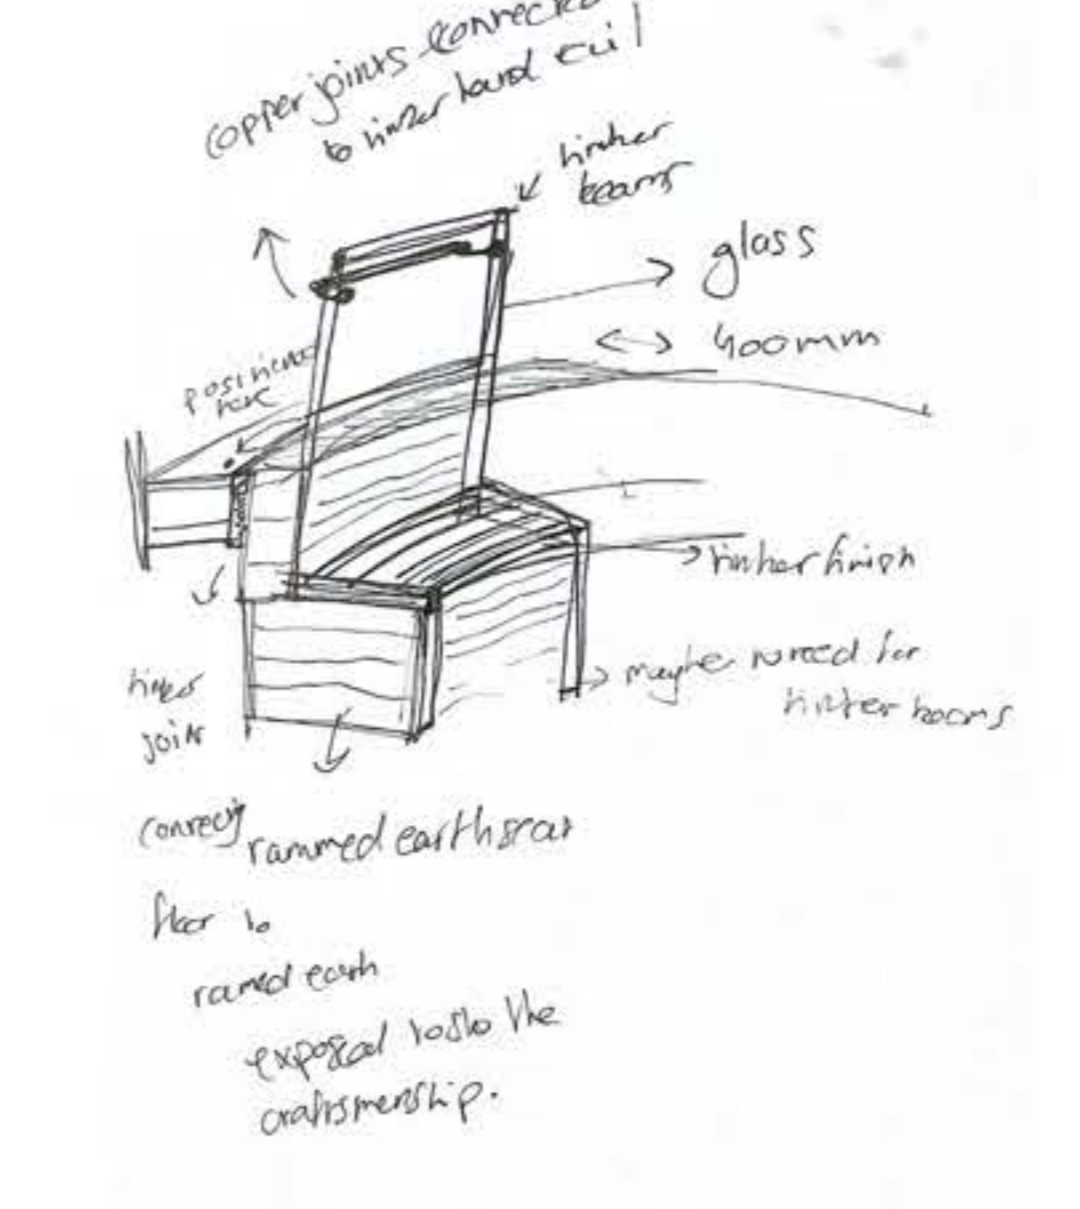 copper joints connected
to timber hand rail
timber
beams
glass
400mm
position
here
timber finish
maybe no need for
timber beams
timber
joints
connecting
rammed earth seat
floor to
rammed earth
exposed to show the
craftsmenship.